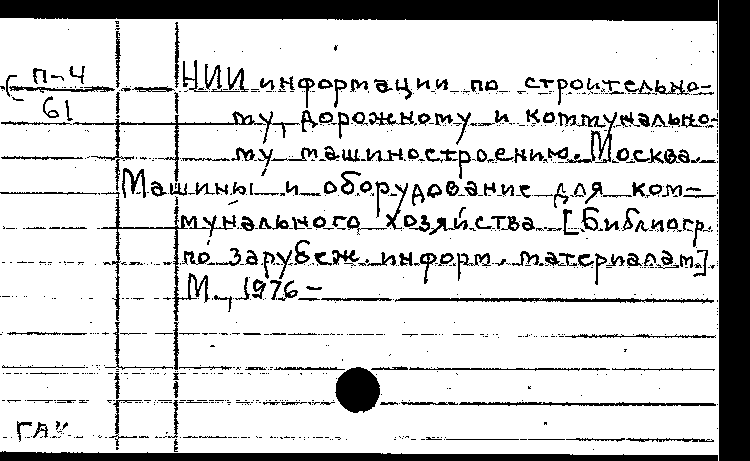 П-4
61
НИИ информации по строительно-
му, дорожному и коммунально-
му машиностроению. Москва.
Машины и оборудование для ком-
мунального хозяйства [Библиогр.
по зарубеж. информ. материалам].
М., 1976 –